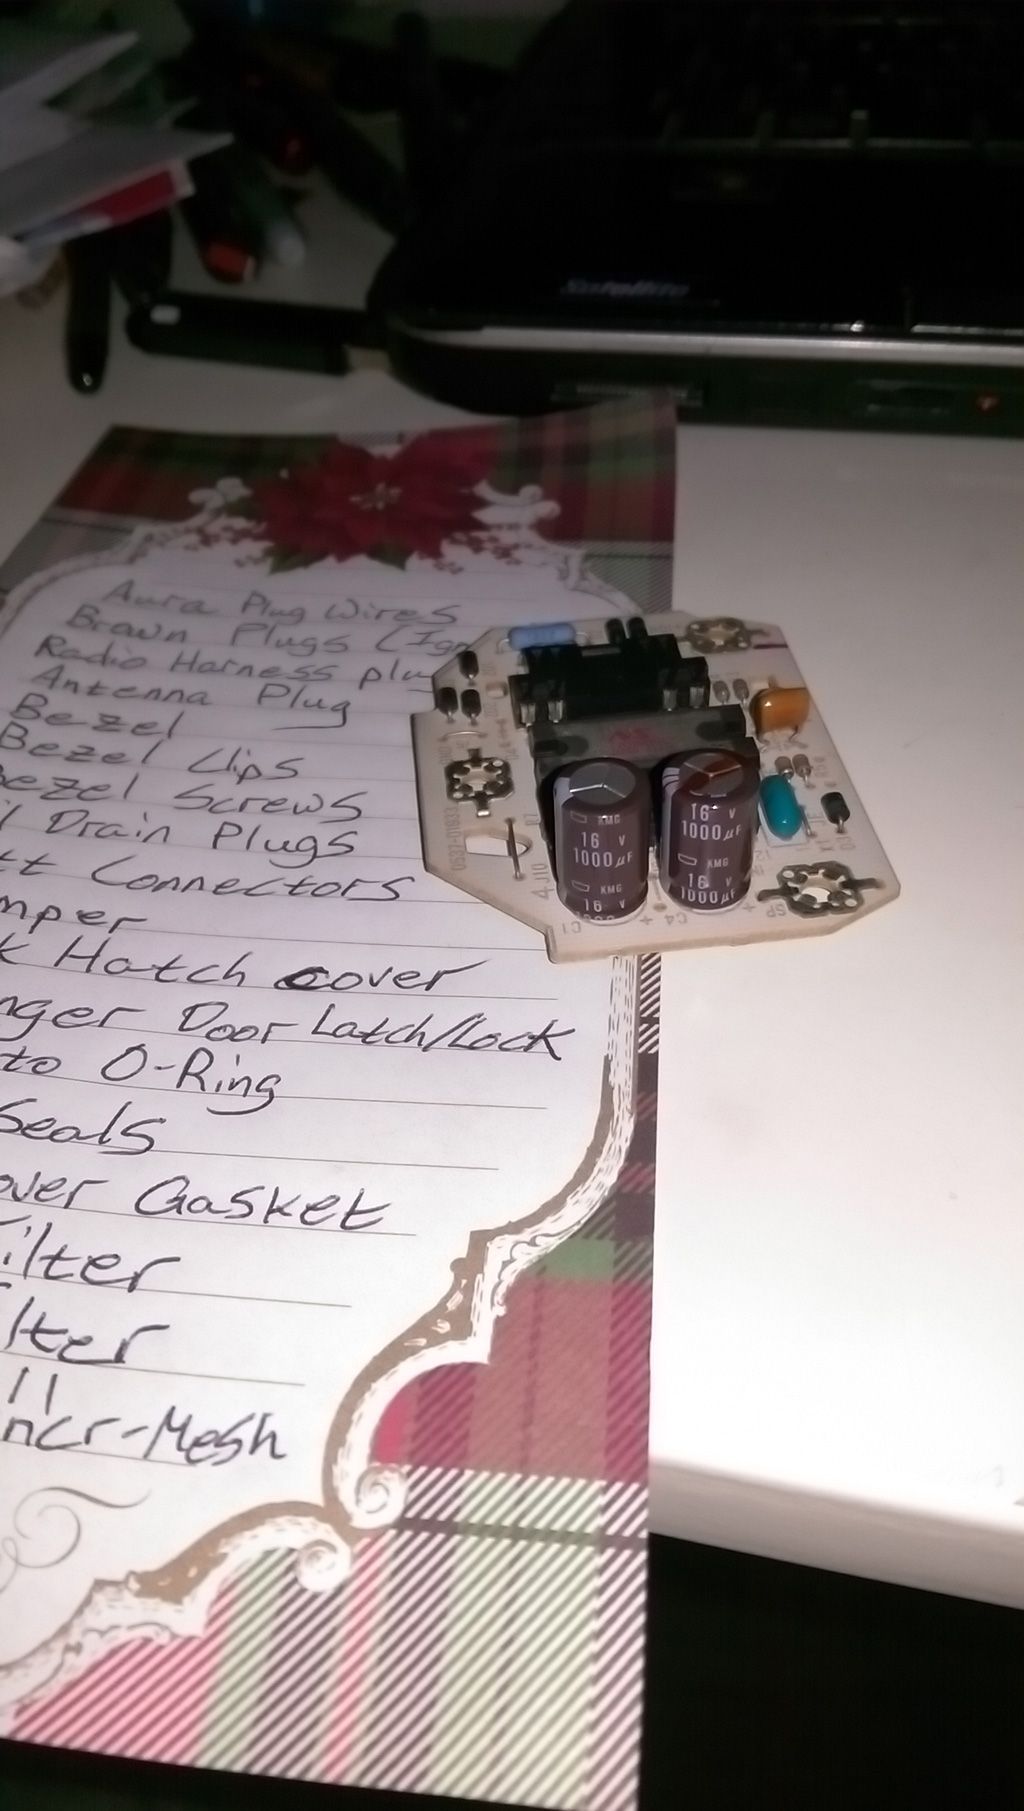 Satellite
Aura Plug Wires
Brown Plugs (Ign
Radio Harness plu
Antenna Plug
Bezel
Bezel Clips
Bezel Screws
l Drain Plugs
tt Connectors
mper
k Hatch cover
nger Door Latch/Lock
to O-Ring
Seals
over Gasket
Filter
lter
ll
ncr-Mesh
KMG
16 V
1000µF
KMG
16 V
16 V
1000µF
KMG
16 V
1000µF
0537-01933
J10
C1
C4
SP